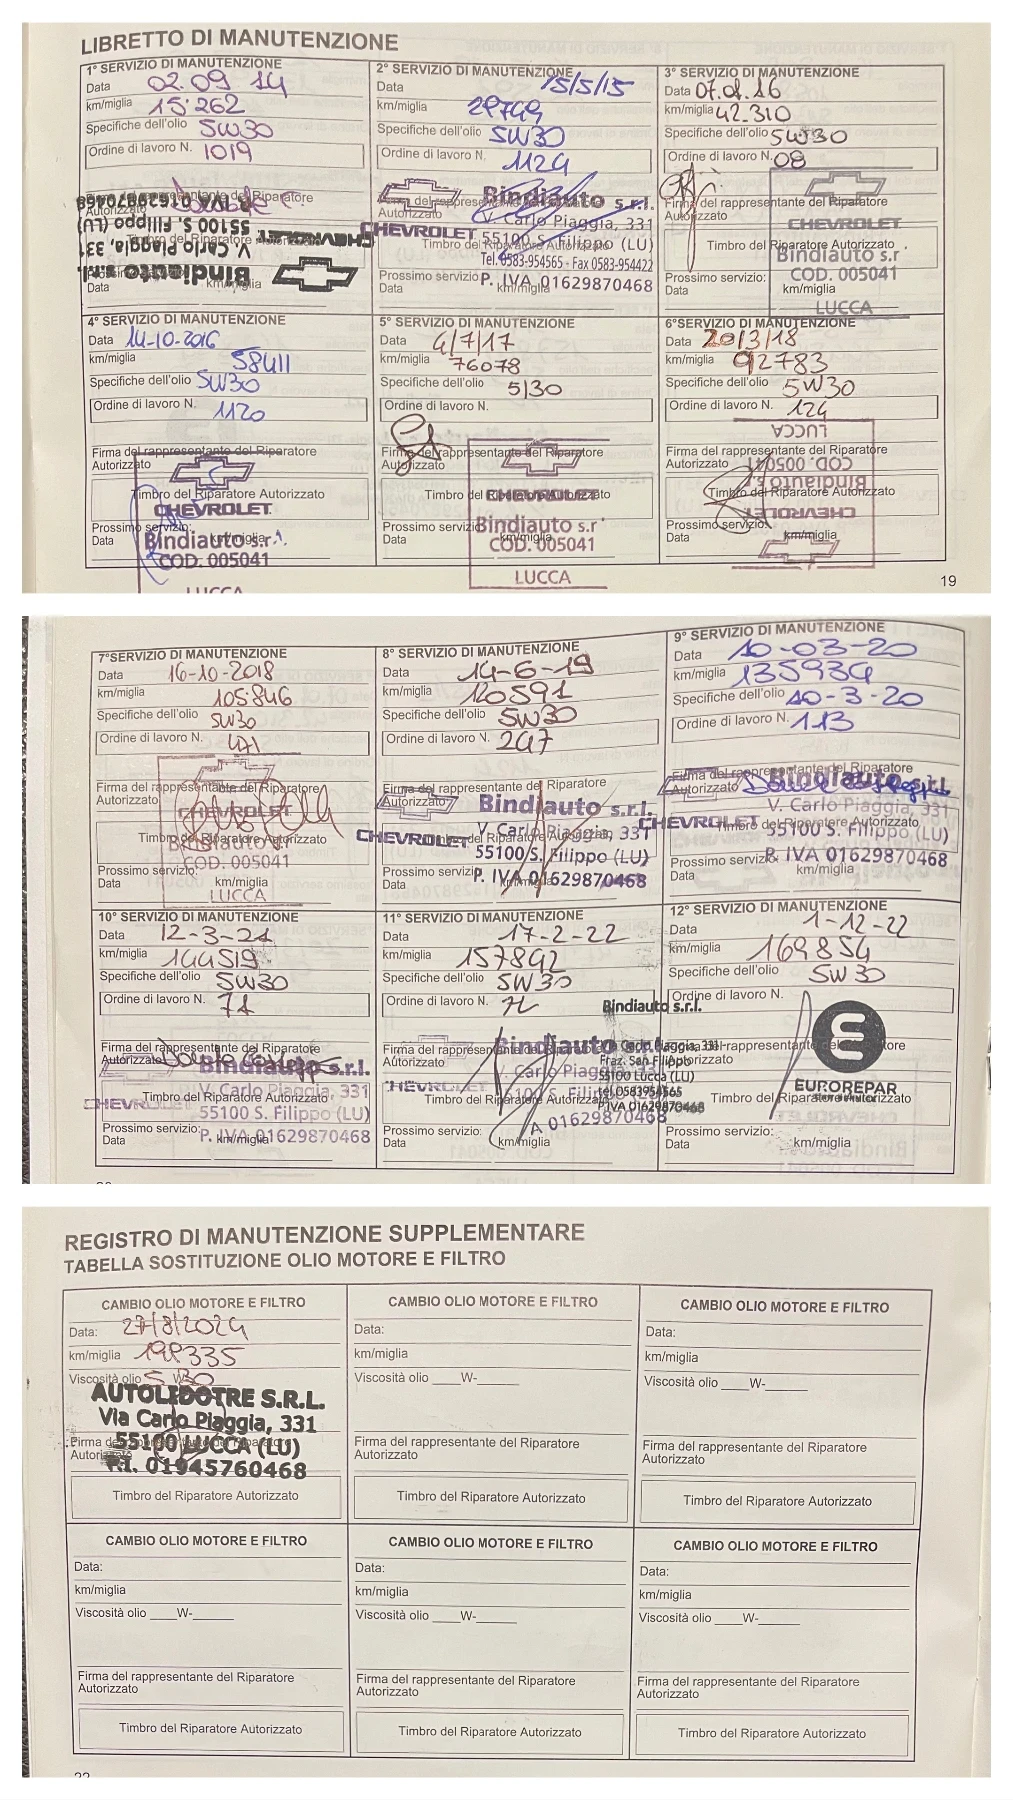 LIBRETTO DI MANUTENZIONE
1° SERVIZIO DI MANUTENZIONE
Data 02.09 14
km/miglia 15·262
Specifiche dell'olio 5W30
Ordine di lavoro N. 1019
Firma del rappresentante del Riparatore
Autorizzato
Timbro del Riparatore Autorizzato
CHEVROLET
Bindiauto s.r.l.
V. Carlo Piaggia, 331
55100 S. Filippo (LU)
P. IVA 01629870468
Prossimo servizio:
Data km/miglia
2° SERVIZIO DI MANUTENZIONE
Data 15/5/15
km/miglia 29749
Specifiche dell'olio 5W30
Ordine di lavoro N. 1124
Firma del rappresentante del Riparatore
Autorizzato
Bindiauto s.r.l.
V. Carlo Piaggia, 331
CHEVROLET 55100 S. Filippo (LU)
Timbro del Riparatore Autorizzato
Tel. 0583-954565 - Fax 0583-954422
P. IVA 01629870468
Prossimo servizio
Data km/miglia
3° SERVIZIO DI MANUTENZIONE
Data 07.01.16
km/miglia 42.310
Specifiche dell'olio 5W30
Ordine di lavoro N. 08
Firma del rappresentante del Riparatore
Autorizzato
CHEVROLET
Timbro del Riparatore Autorizzato
Bindiauto s.r
COD. 005041
LUCCA
Prossimo servizio:
Data km/miglia
4° SERVIZIO DI MANUTENZIONE
Data 14-10-2016
km/miglia 58411
Specifiche dell'olio 5W30
Ordine di lavoro N. 1120
Firma del rappresentante del Riparatore
Autorizzato
Timbro del Riparatore Autorizzato
CHEVROLET
Prossimo servizio:
Data km/miglia
Bindiauto s.r.
COD. 005041
LUCCA
5° SERVIZIO DI MANUTENZIONE
Data 4/7/17
km/miglia 76078
Specifiche dell'olio 5/30
Ordine di lavoro N.
Firma del rappresentante del Riparatore
Autorizzato
Timbro del Riparatore Autorizzato
CHEVROLET
Prossimo servizio
Data km/miglia
Bindiauto s.r
COD. 005041
LUCCA
6°SERVIZIO DI MANUTENZIONE
Data 20/3/18
km/miglia 92783
Specifiche dell'olio 5W30
Ordine di lavoro N. 124
Firma del rappresentante del Riparatore
Autorizzato
Timbro del Riparatore Autorizzato
Prossimo servizio:
Data km/miglia
CHEVROLET
Bindiauto s.
COD. 005041
LUCCA
19
7°SERVIZIO DI MANUTENZIONE
Data 16-10-2018
km/miglia 105·846
Specifiche dell'olio 5W30
Ordine di lavoro N. 471
Firma del rappresentante del Riparatore
Autorizzato
CHEVROLET
Timbro del Riparatore Autorizzato
COD. 005041
LUCCA
Prossimo servizio:
Data km/miglia
8° SERVIZIO DI MANUTENZIONE
Data 14-6-19
km/miglia 120591
Specifiche dell'olio 5W30
Ordine di lavoro N. 247
Firma del rappresentante del Riparatore
Autorizzato
Bindiauto s.r.l.
V. Carlo Piaggia, 331
CHEVROLET
Timbro del Riparatore Autorizzato
55100 S. Filippo (LU)
P. IVA 01629870468
Prossimo servizio:
Data km/miglia
9° SERVIZIO DI MANUTENZIONE
Data 10-03-20
km/miglia 135934
Specifiche dell'olio 10-3-20
Ordine di lavoro N. 113
Firma del rappresentante del Riparatore
Autorizzato
Bindiauto s.r.l
V. Carlo Piaggia, 331
CHEVROLET
Timbro del Riparatore Autorizzato
55100 S. Filippo (LU)
P. IVA 01629870468
Prossimo servizio:
Data km/miglia
10° SERVIZIO DI MANUTENZIONE
Data 12-3-21
km/miglia 144519
Specifiche dell'olio 5W30
Ordine di lavoro N. 71
Firma del rappresentante del Riparatore
Autorizzato
Bindiauto s.r.l.
V. Carlo Piaggia, 331
CHEVROLET
Timbro del Riparatore Autorizzato
55100 S. Filippo (LU)
P. IVA 01629870468
Prossimo servizio:
Data km/miglia
11° SERVIZIO DI MANUTENZIONE
Data 17-2-22
km/miglia 157892
Specifiche dell'olio 5W30
Ordine di lavoro N.
Bindiauto s.r.l.
Firma del rappresentante del Riparatore
Autorizzato
Bindiauto
V. Carlo Piaggia, 331
Fraz. San Filippo
55100 Lucca (LU)
tel 0583954565
P. IVA 01629870468
CHEVROLET
Timbro del Riparatore Autorizzato
01629870468
Prossimo servizio:
Data km/miglia
12° SERVIZIO DI MANUTENZIONE
Data 1-12-22
km/miglia 169854
Specifiche dell'olio 5W30
Ordine di lavoro N.
Firma del rappresentante del Riparatore
Autorizzato
EUROREPAR
Timbro del Riparatore Autorizzato
Prossimo servizio:
Data km/miglia
REGISTRO DI MANUTENZIONE SUPPLEMENTARE
TABELLA SOSTITUZIONE OLIO MOTORE E FILTRO
CAMBIO OLIO MOTORE E FILTRO
Data: 27/8/2024
km/miglia 198335
Viscosità olio 5 W- 30
AUTOLIDOTRE S.R.L.
Via Carlo Piaggia, 331
55100 LUCCA (LU)
P.I. 01945760468
Firma del rappresentante del Riparatore
Autorizzato
Timbro del Riparatore Autorizzato
CAMBIO OLIO MOTORE E FILTRO
Data:
km/miglia
Viscosità olio ____W-______
Firma del rappresentante del Riparatore
Autorizzato
Timbro del Riparatore Autorizzato
CAMBIO OLIO MOTORE E FILTRO
Data:
km/miglia
Viscosità olio ____W-______
Firma del rappresentante del Riparatore
Autorizzato
Timbro del Riparatore Autorizzato
CAMBIO OLIO MOTORE E FILTRO
Data:
km/miglia
Viscosità olio ____W-______
Firma del rappresentante del Riparatore
Autorizzato
Timbro del Riparatore Autorizzato
CAMBIO OLIO MOTORE E FILTRO
Data:
km/miglia
Viscosità olio ____W-______
Firma del rappresentante del Riparatore
Autorizzato
Timbro del Riparatore Autorizzato
CAMBIO OLIO MOTORE E FILTRO
Data:
km/miglia
Viscosità olio ____W-______
Firma del rappresentante del Riparatore
Autorizzato
Timbro del Riparatore Autorizzato